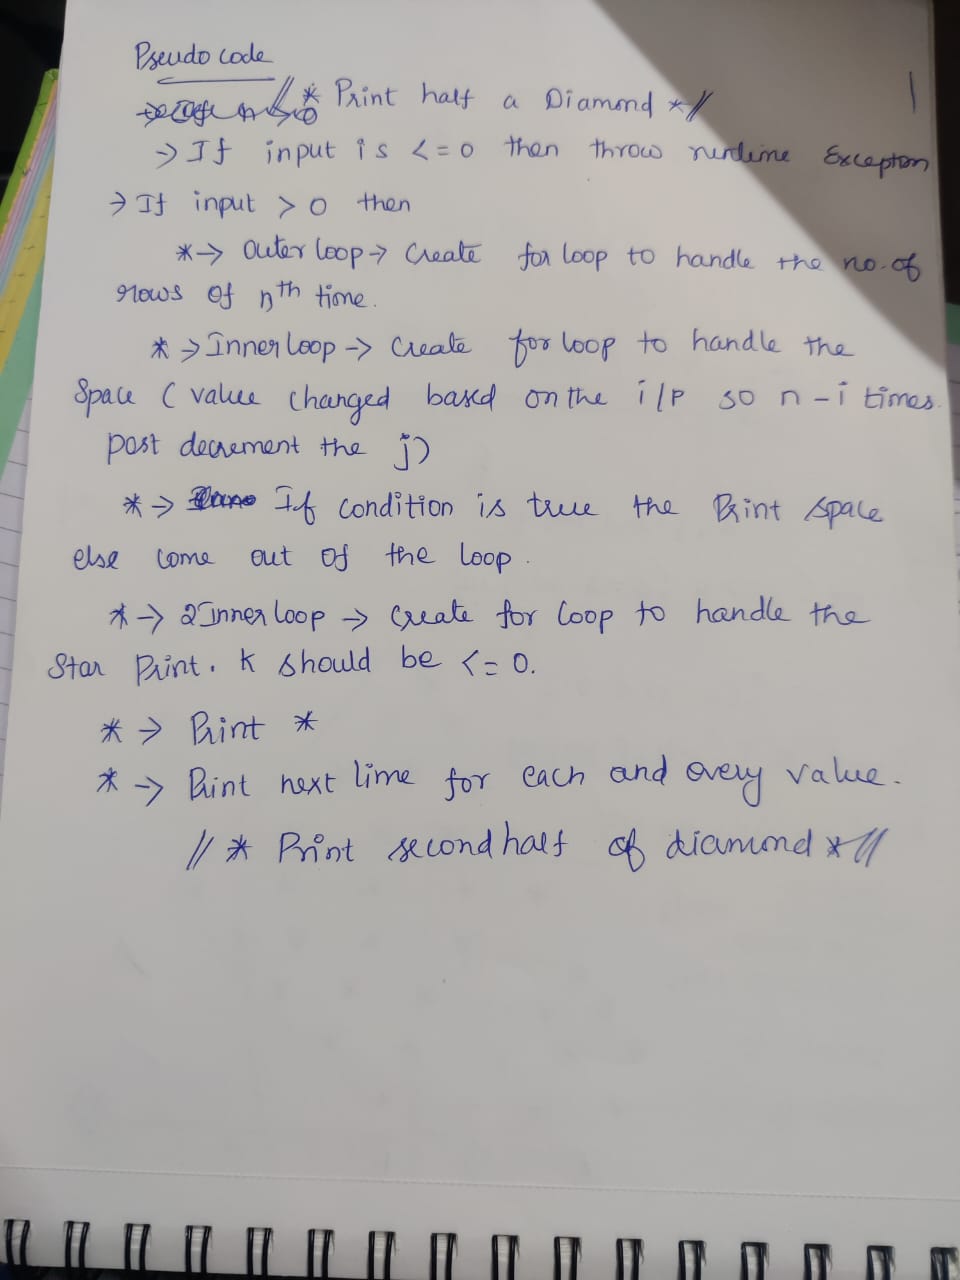 Pseudo code
//* Print half a Diamond *//
→ If input is <=0 then throw runtime Exception
→ If input > 0 then
*→ Outer loop → Create for loop to handle the no. of
rows of nth time.
* → Inner loop → Create for loop to handle the
Space ( value changed based on the i/p so n-i times.
post decrement the j)
* → If condition is true the Print space
else come out of the loop.
*→ 2 Inner loop → Create for loop to handle the
Star Print. K should be <= 0.
* → Print *
* → Print next lime for each and every value.
//* Print second half of diamond *//